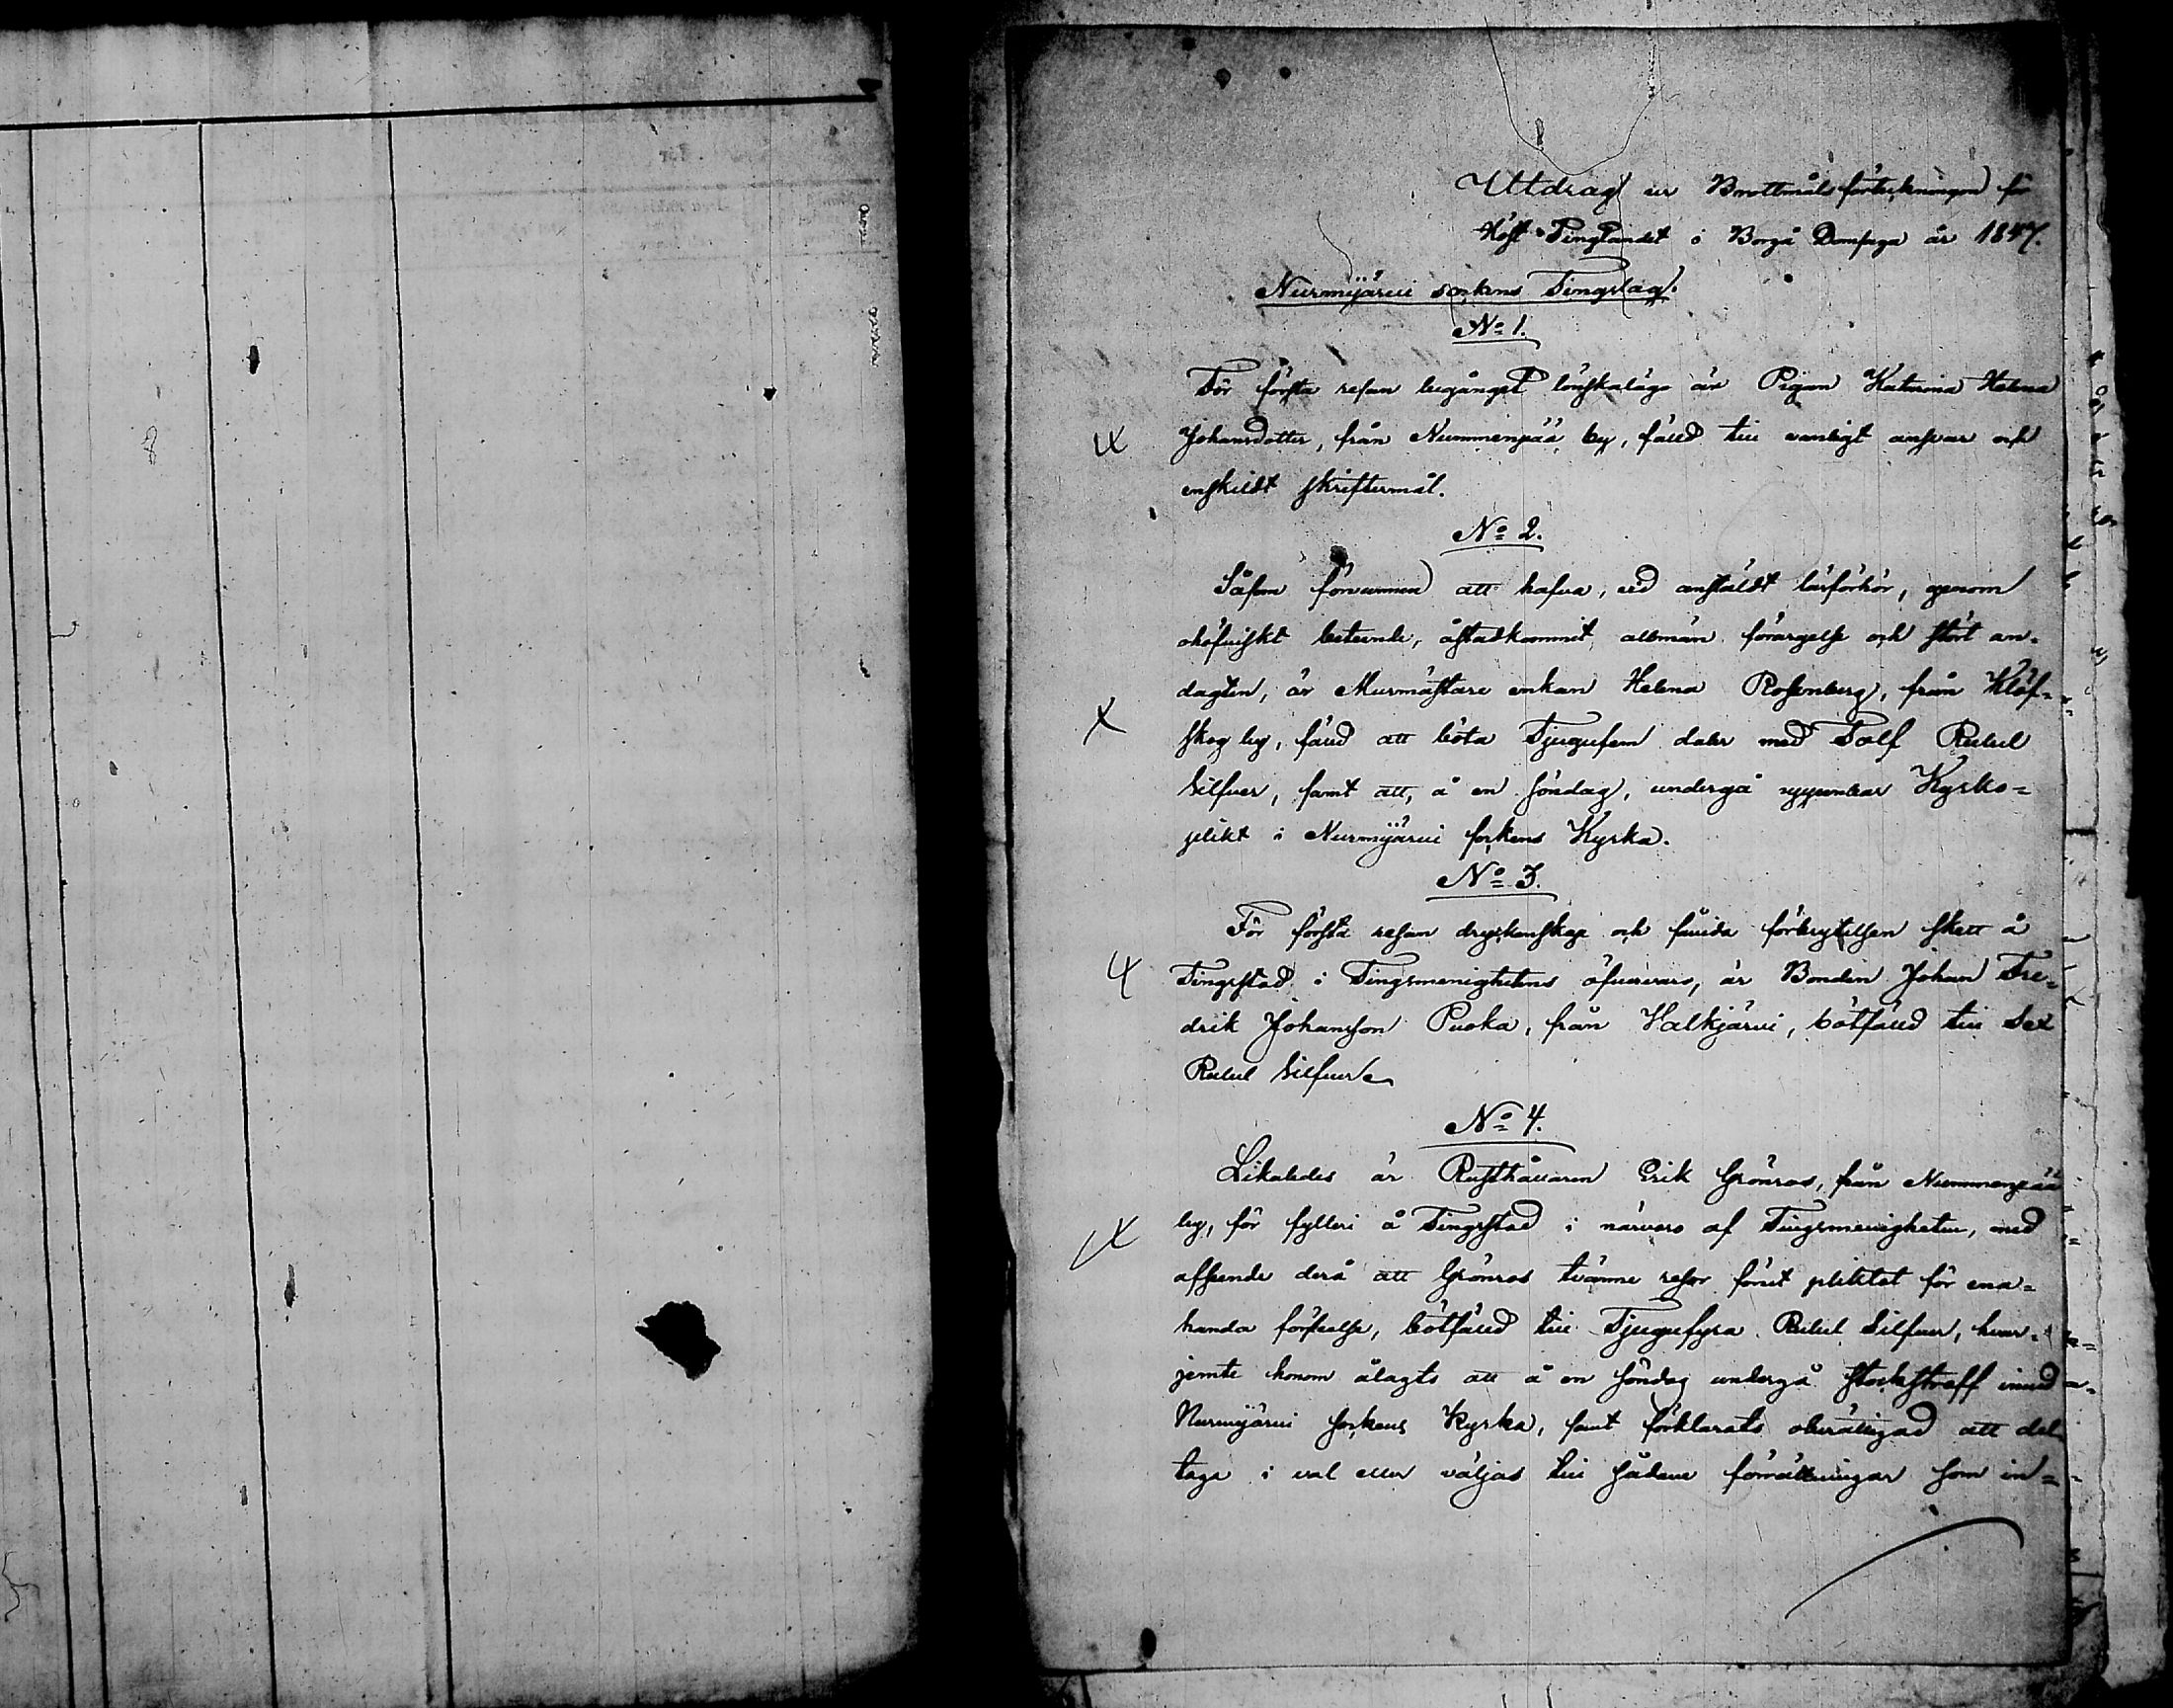 Utdrag ur Brottmåls förteckningen för
Höst Tingen i Borgå Domsaga år 1847.
Nurmijärvi sockens Tingslag.
No 1.
För första resan begånget lönskaläge är Pigan Katarina Helena
Johansdotter, från Nummenpää by, fälld till vanligt ansvar och
enskildt skriftermål.
No 2.
Såsom förvunnen att hafva, vid anstäldt läsförhör, genom
ohöfviskt beteende, åstadkommit allmän förargelse och stört an-
dagten, är Murmästare enkan Helena Rosenberg, från Klöf-
skog by, fälld att böta Tjugufem daler med Tolf Rubel
Silfver, samt att, å en söndag, undergå uppenbar Kyrko-
plikt i Nurmijärvi sockens Kyrka.
No 3.
För första resan dryckenskap och sålunda förbrytelsen skett å
Tingsstad i Tingsmenighetens öfvervaro, är Bonden Johan Fre-
drik Johansson Puoka, från Valkjärvi, bötfälld till Sex
Rubel Silfver.
No 4.
Likaledes är Rusthållaren Erik Grönroos, från Nummenpää
by, för fylleri å Tingsstad i närvaro af Tingsmenigheten, med
afseende derå att Grönroos tvänne resor förut pliktat för ena-
handa förseelse, bötfälld till Tjugufyra Rubel Silfver, hvar-
jemte honom ålagts att å en söndag undergå stockstraff invid
Nurmijärvi sockens Kyrka, samt förklarats oberättigad att del-
taga i val eller väljas till sådane förrättningar som in-